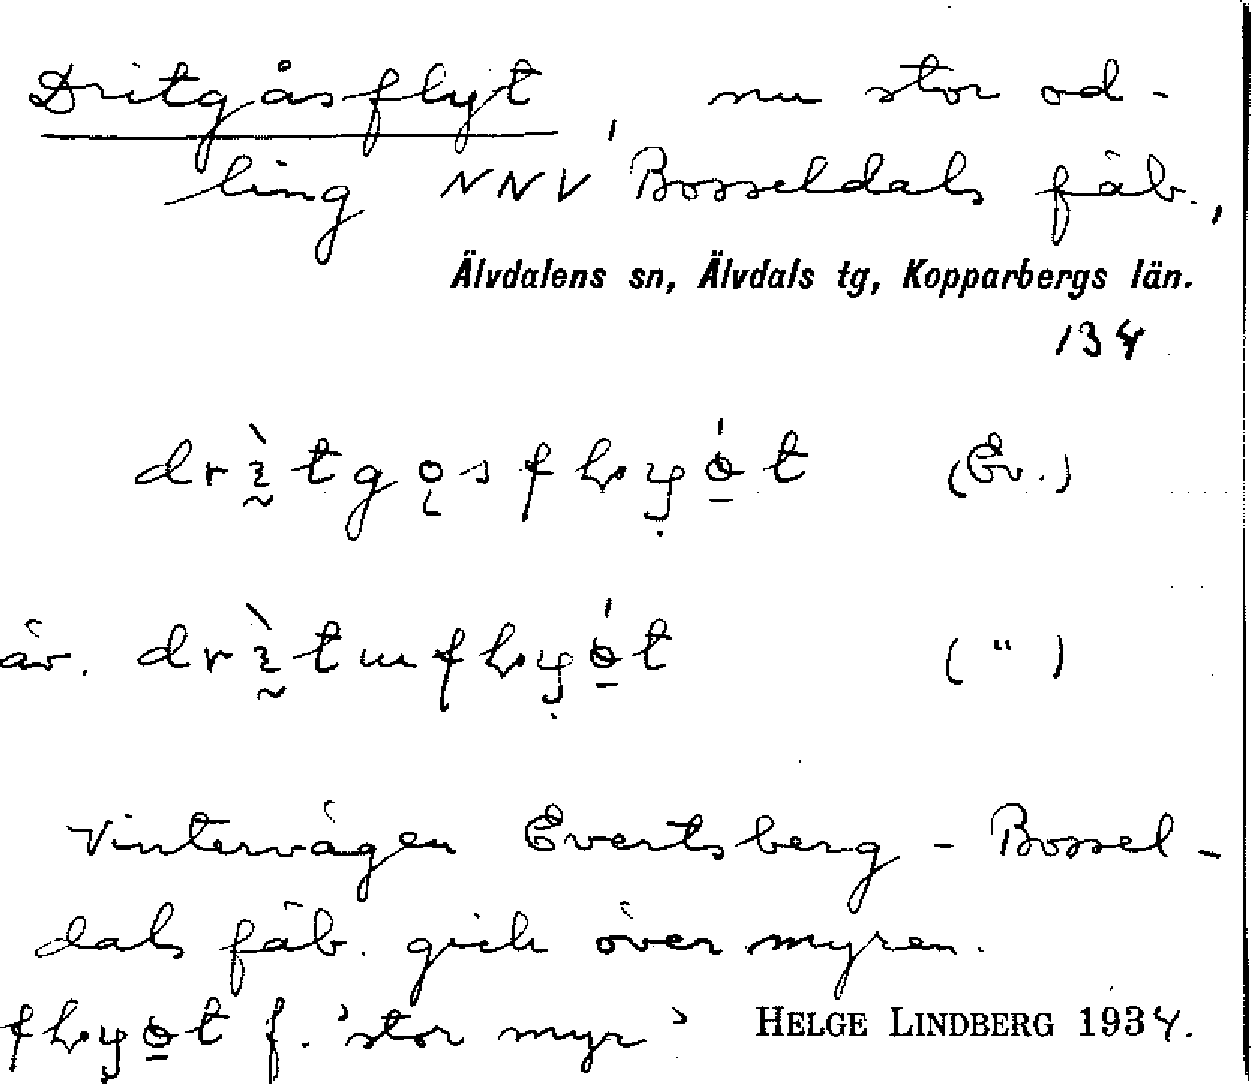 Dritgåsflyt, nu stor od-
ling NNV Bosseldals fäb.,
Älvdalens sn, Älvdals tg, Kopparbergs län.
134
(Ev.)
äv. ( " )
Vintervägen Evertsberg - Bossel-
dals fäb. gick över myren.
f. 'stor myr' HELGE LINDBERG 1934.